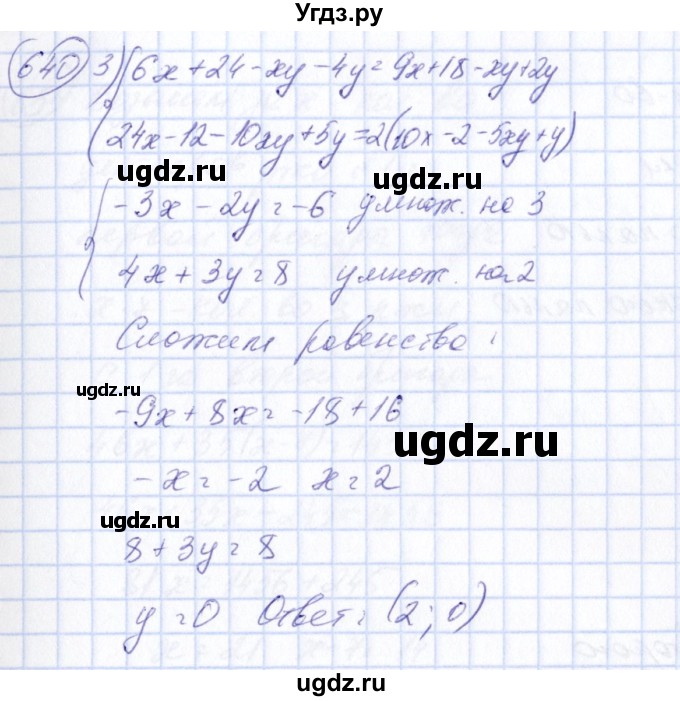 Угдз.ру
640 3) { 6x + 24 - xy - 4y = 9x + 18 - xy + 2y
24x - 12 - 10xy + 5y = 2(10x - 2 - 5xy + y)
ugdz.ru ugdz.ru
{ -3x - 2y = -6 умнож. на 3
4x + 3y = 8 умнож. на 2
Сложим равенства:
ugdz.ru
-9x + 8x = -18 + 16
ugdz.ru
-x = -2 x = 2
ugdz.ru
8 + 3y = 8
y = 0 Ответ: (2; 0)
ugdz.ru
ugdz.ru